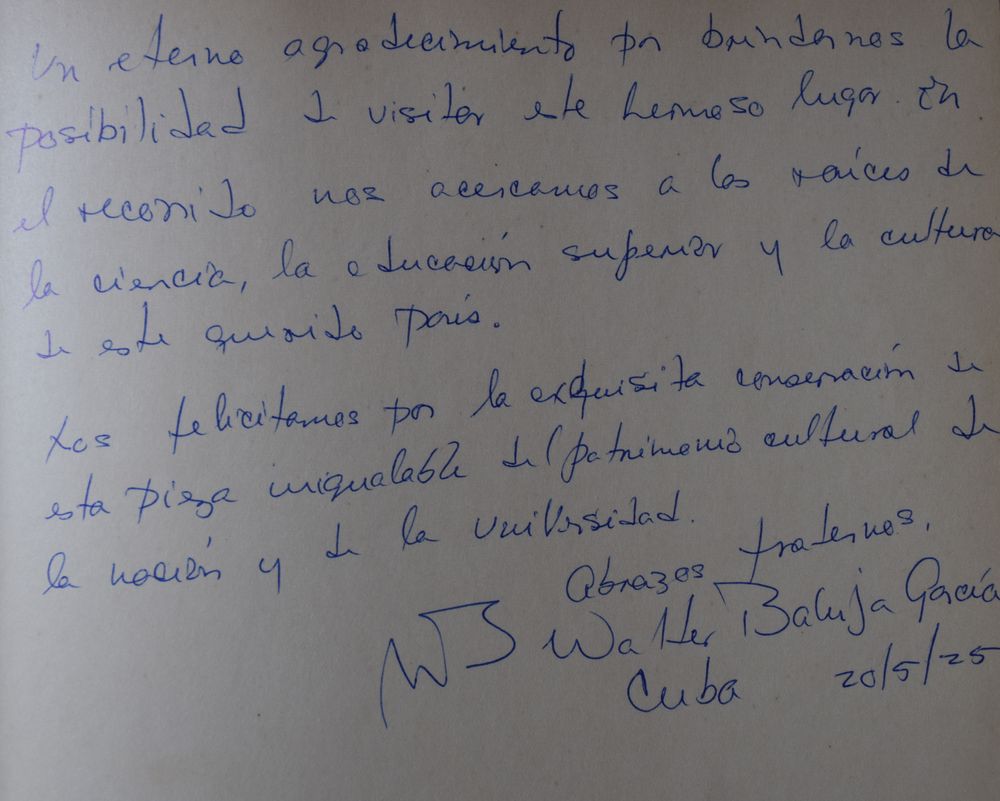 Un eterno agradecimiento por brindarnos la
posibilidad de visitar este hermoso lugar. En
el recorrido nos acercamos a las raíces de
la ciencia, la educación superior y la cultura
de este querido país.
Los felicitamos por la exquisita conservación de
esta pieza inigualable del patrimonio cultural de
la nación y de la universidad.
Abrazos fraternos,
Walter Baluja García
Cuba 20/5/25